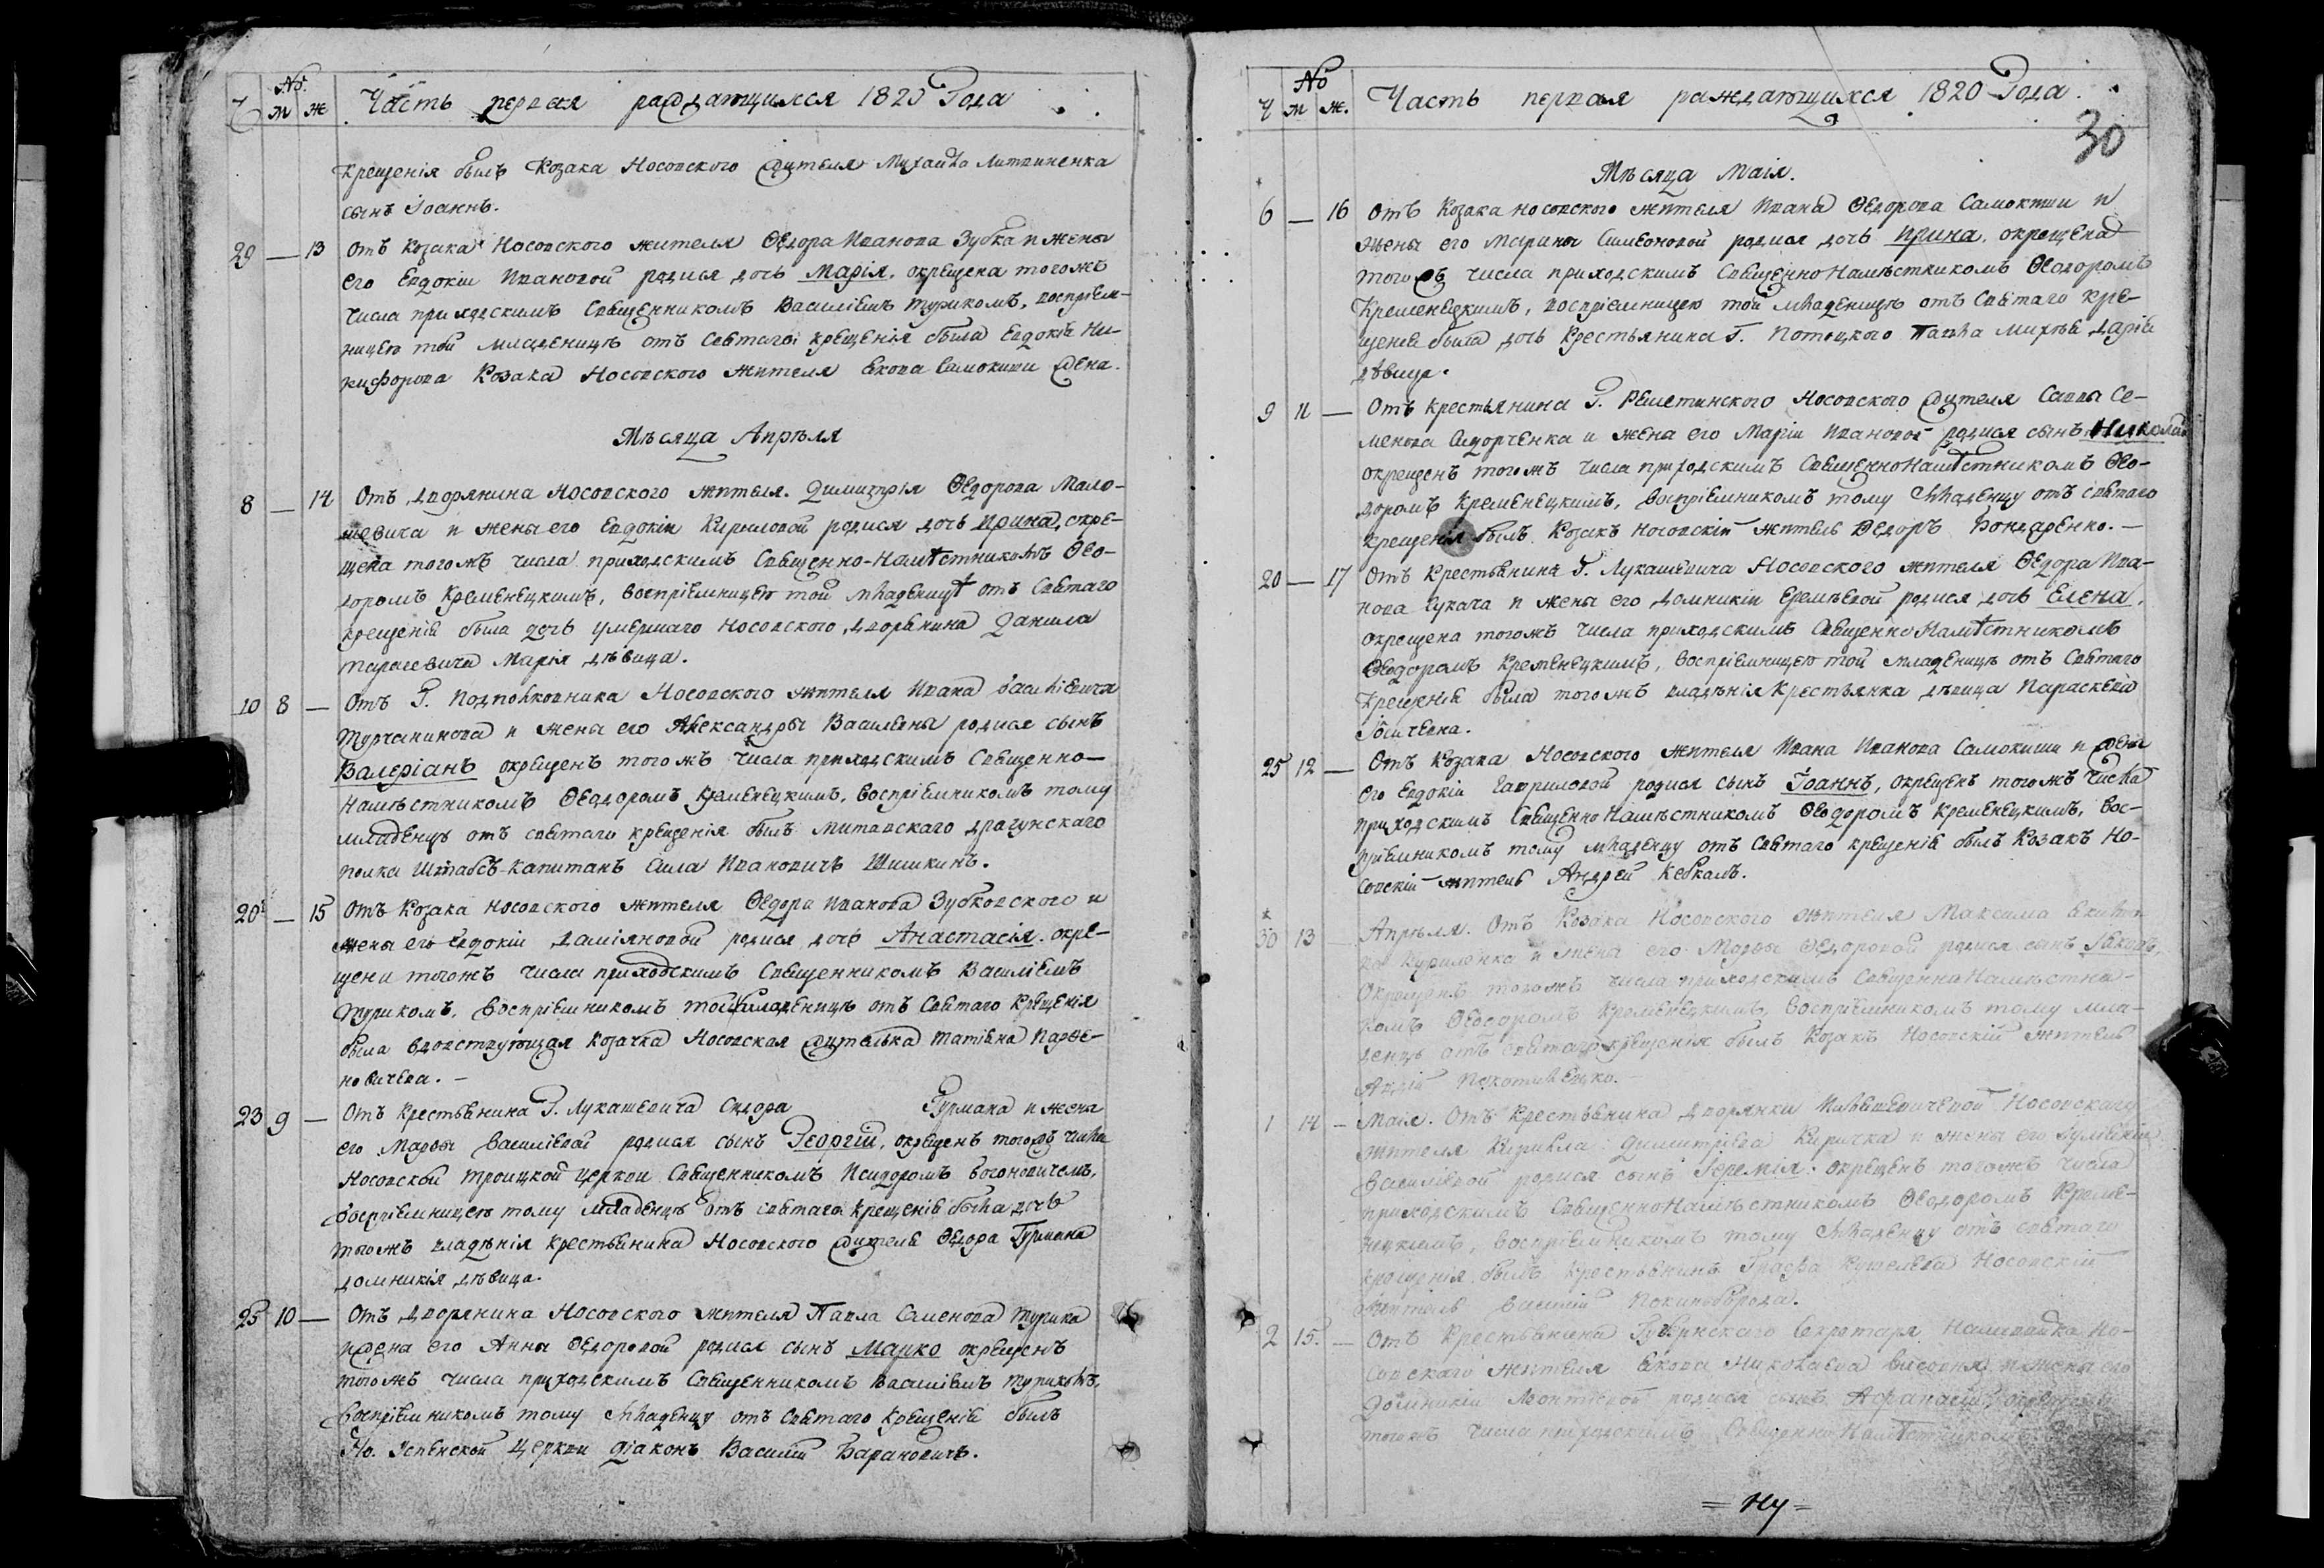 Ч № м ж Часть первая раждающихся 1820 Года
крещенія былъ Козака Носовского жителя Михайла Литвиненка
сынъ Іоаннъ.
29 — 13 Отъ Козака Носовского жителя Ѳедора Иванова Зубка и жены
его Евдокіи Ивановой родися дочь Марія, окрещена тогожъ
числа приходскимъ Священникомъ Василіемъ Турикомъ, воспріем-
ницею той младеницѣ отъ Святаго крещенія была Евдокія Ни-
кифорова Козака Носовского жителя Якова Самокиши жена.
Мѣсяца Апрѣля
8 — 14 Отъ дворянина Носовского жителя Димитрія Ѳедорова Мало-
шевича и жены его Евдокіи Кириловой родися дочь Ирина, окре-
щена тогожъ числа приходскимъ Священно-Намѣстникомъ Ѳео-
доромъ Кременецкимъ, воспріемницею той младеницѣ отъ Святаго
крещенія была дочь умершаго Носовского дворянина Данила
Тарасевича Марія дѣвица.
10 8 — Отъ Г. Подполковника Носовского жителя Ивана Василіевича
Турчанинова и жены его Александры Васильевны родися сынъ
Валеріанъ окрещенъ тогожъ числа приходскимъ Священно—
Намѣстникомъ Ѳеодоромъ Кременецкимъ, воспріемникомъ тому
младенцѣ отъ святаго крещенія былъ Митавскаго драгунскаго
полка Штабсъ-Капитанъ Сила Ивановичъ Шишкинъ.
20 — 15 Отъ Козака Носовского жителя Ѳедора Иванова Зубковского и
жены его Евдокіи Даміяновой родися дочь Анастасія. окре-
щена тогожъ числа приходскимъ Священникомъ Василіемъ
Турикомъ, воспріемникомъ той младеницѣ отъ Святаго крещенія
была вдовствующая Козачка Носовская жителька Татіана Парѳе-
новичева. —
23 9 — Отъ крестьянина Г. Лукашевича Сидора Гурмана и жены
его Марѳы Василіевой родися сынъ Георгій, окрещенъ тогожъ числа
Носовской Троицкой церкви Священникомъ Исидоромъ Богоновичемъ,
воспріемницею тому младенцѣ отъ святаго крещенія была дочь
тогожъ владѣнія крестьянина Носовского жителя Ѳедора Гурмана
Домникія дѣвица.
25 10 — Отъ дворянина Носовского жителя Павла Семенова Турика
и жена его Анны Ѳедоровой родися сынъ Марко окрещенъ
тогожъ числа приходскимъ Священникомъ Василіемъ Турикомъ,
воспріемникомъ тому младенцу отъ Святаго крещенія былъ
Но. Успенской Церкви діаконъ Василій Барановичъ.
Ч № м ж. Часть первая раждающихся 1820 Года.
30
Мѣсяца Маія.
6 — 16 Отъ Козака Носовского жителя Ивана Ѳедорова Самокиши и
жены его Марины Симеоновой родися дочь Ирина. окрещена
тогожъ числа приходскимъ СвященноНамѣстникомъ Ѳеодоромъ
Кременецкимъ, воспріемницею той младеницѣ отъ Святаго кре-
щенія была дочь крестьянина Г. Потоцкого Павла Дарія
дѣвица.
9 11 — Отъ крестьянина Г. Решетинского Носовского жителя Саввы Се-
менова Сидорченка и жена его Маріи Ивановой родися сынъ Николай
окрещенъ тогожъ числа приходскимъ СвященноНамѣстникомъ Ѳео-
доромъ Кременецкимъ, воспріемникомъ тому младенцу отъ святаго
крещенія былъ Козакъ Носовскій житель Ѳедоръ Бондаренко. —
20 — 17 Отъ крестьянина Г. Лукашевича Носовского жителя Ѳедора Ива-
нова Лукача и жены его Домникіи Еремѣевой родися дочь Елена,
окрещена тогожъ числа приходскимъ СвященноНамѣстникомъ
Ѳеодоромъ Кременецкимъ, воспріемницею той младеницѣ отъ Святаго
крещенія была тогожъ владѣнія крестьянка дѣвица Параскева
25 12 — Отъ Козака Носовского жителя Ивана Иванова Самокиши и жены
его Евдокіи Гавриловой родися сынъ Іоаннъ, окрещенъ тогожъ числа
приходскимъ СвященноНамѣстникомъ Ѳеодоромъ Кременецкимъ, вос-
пріемникомъ тому младенцу отъ Святаго крещенія былъ Козакъ Но-
совскій житель Андрей Кебкалъ.
30 13 — Апрѣля. Отъ Козака Носовского жителя Максима
Куриленка и жена его Марѳы Ѳедоровой родися сынъ Іаковъ,
окрещенъ тогожъ числа приходскимъ СвященноНамѣстни-
комъ Ѳеодоромъ Кременецкимъ, воспріемникомъ тому мла-
денцѣ отъ святаго крещенія былъ Козакъ Носовскій житель
1 14 — Маія. Отъ крестьянина дворянки Носовскаго
жителя Кирилла Димитріева Киричка и жены его
Василіевой родися сынъ Іеремія. окрещенъ тогожъ числа
приходскимъ СвященноНамѣстникомъ Ѳеодоромъ Креме-
нецкимъ, воспріемникомъ тому младенцу отъ святаго
крещенія былъ крестьянинъ Графа Носовскій
житель Василій
2 15. — Отъ крестьянина Губернскаго Секретаря Но-
совскаго жителя Якова Николаева и жены его
Домникіи Леонтіевой родися сынъ Аѳанасій, окрещенъ
тогожъ числа приходскимъ СвященноНамѣстникомъ
= Ну =